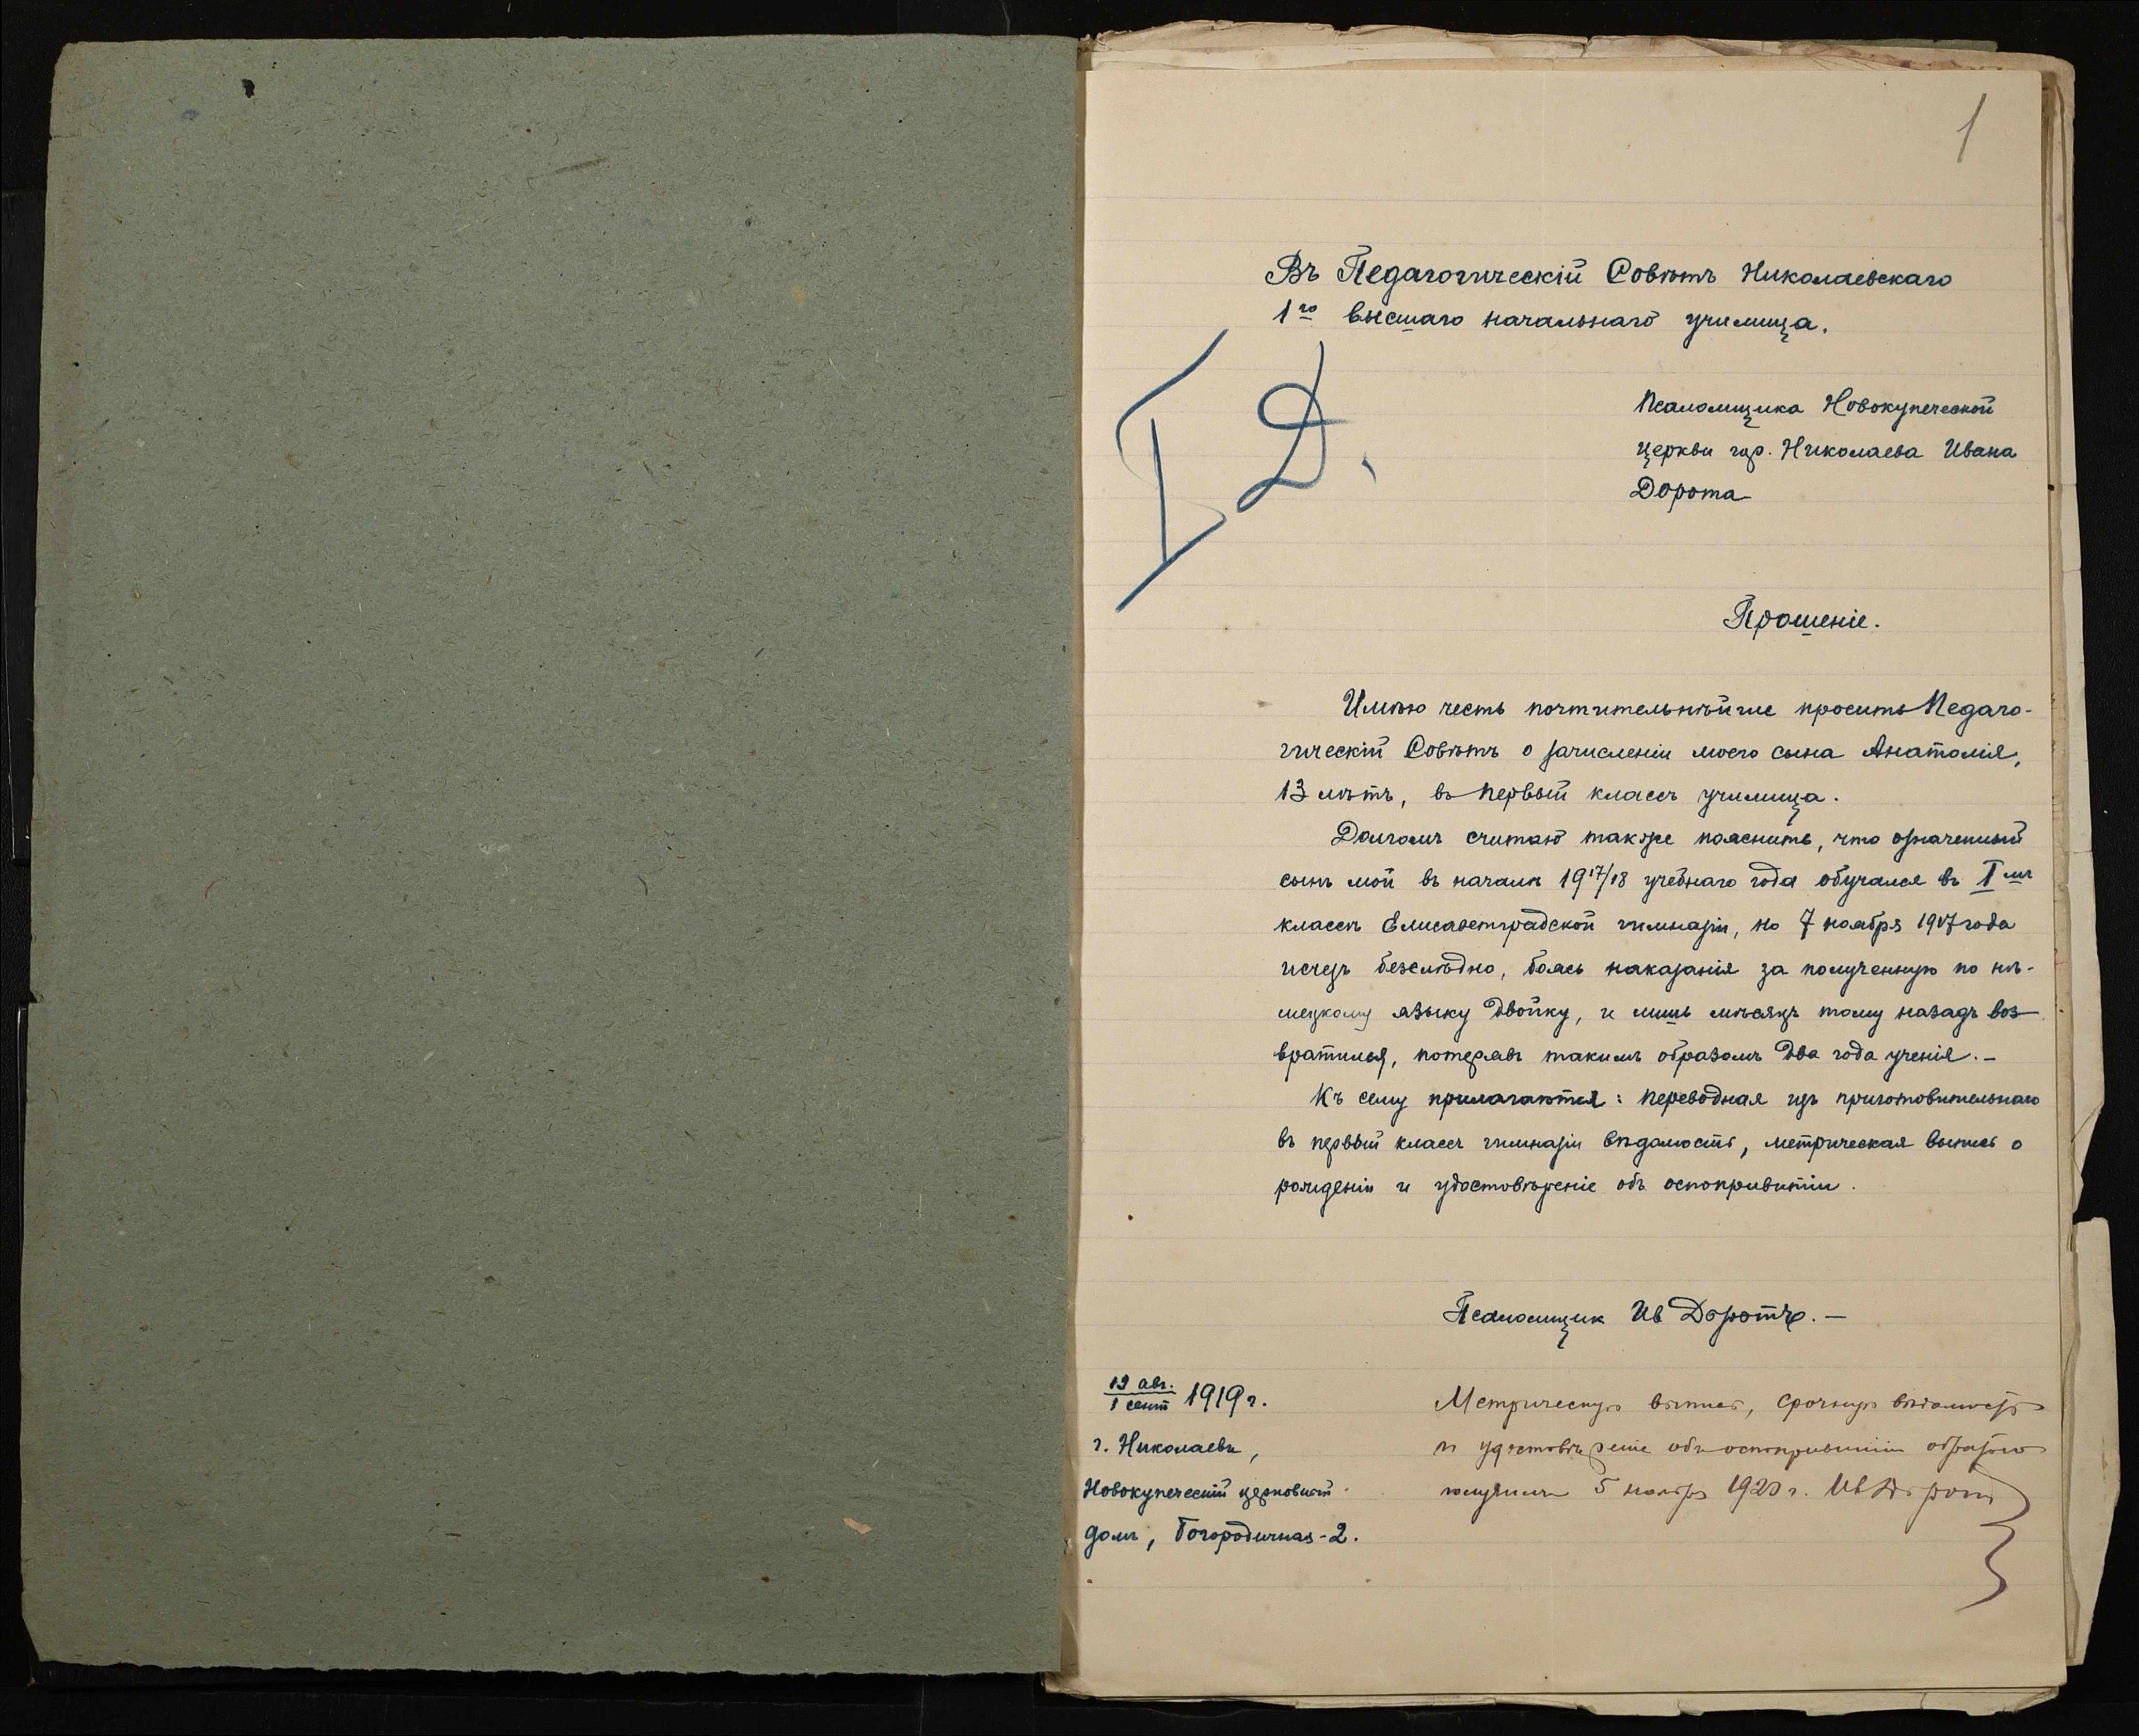 1
Въ Педагогическій Совѣтъ Николаевскаго
1го высшаго начальнаго училища.
I Д.
Псаломщика Новокупеческой
церкви гор. Николаева Ивана
Дорота
Прошеніе.
Имѣю честь почтительнѣйше просить Педаго-
гическій Совѣтъ о зачисленіи моего сына Анатолія,
13 лѣтъ, въ первый классъ училища.
Долгомъ считаю также пояснить, что означенный
сынъ мой въ началѣ 1917/18 учебнаго года обучался въ Iмъ
классѣ Елисаветградской гимназіи, но 7 ноября 1917 года
исчезъ безслѣдно, боясь наказанія за полученную по нѣ-
мецкому языку двойку, и лишь мѣсяцъ тому назадъ воз-
вратился, потерявъ такимъ образомъ два года ученія.-
Къ сему прилагаются: переводная изъ приготовительнаго
въ первый классъ гимназіи вѣдомость, метрическая выпись о
рожденіи и удостовѣреніе объ оспопривитіи.
Псаломщик Ив Доротъ.-
19 авг.
1 сент 1919 г.
г. Николаевъ,
Новокупеческій церковный
домъ, Богородичная-2.
Метрическую выпись, срочную вѣдомость
и удостовѣреніе объ оспопривитіи обратно
получилъ 5 ноября 1920 г. Ив Дорот